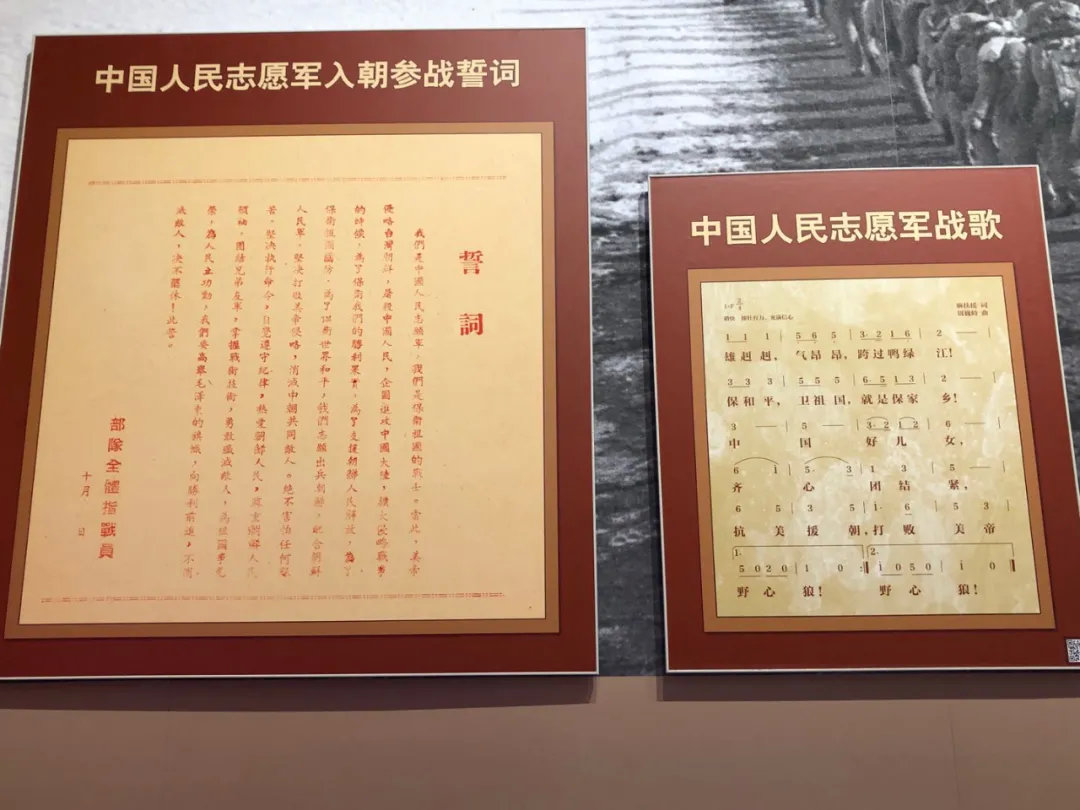 中国人民志愿军入朝参战誓词
誓詞
我們是中國人民志願軍,我們是保衛祖國的戰士。當此,美帝
侵略台灣朝鮮,屠殺中國人民,企圖進攻中國大陸,擴大侵略戰爭
的時候,為了保衛我們的勝利果實,為了支援朝鮮人民解放,為了
保衛祖國國防,為了保衛世界和平,我們志願出兵朝鮮,配合朝鮮
人民軍,堅决打敗美帝侵略,消滅中朝共同敵人。绝不害怕任何艱
苦,堅决執行命令,自覺遵守紀律,熱愛朝鮮人民,尊重朝鮮人民
領袖,團結兄弟友軍,掌握戰術技術,勇敢殲滅敵人,為祖國爭光
榮,為人民立功勳,我們要高舉毛澤東的旗幟,向勝利前進,不消
滅敵人,决不罷休!此誓。
部隊全體指戰員
十月 日
中国人民志愿军战歌
1=F 2/4
麻扶摇 词
周巍峙 曲
稍快 雄壮有力、充满信心
1 1 1 | 5 6 5 | 3· 2 1 6 | 2 — |
雄赳赳, 气昂昂, 跨过鸭绿 江!
3 3 3 | 5 5 5 | 6· 5 1 3 | 2 — |
保和平, 卫祖国, 就是保家 乡!
3 — | 5 — | 3· 2 1 2 | 6 — |
中 国 好儿 女,
6 i | 5· 3 | 1 3 | 5 — |
齐 心 团结 紧,
6 5 | 3 5 | i· 6 | 5 3 |
抗美援朝,打败美帝
1. 2.
5 0 2 0 | 1 0 :| i 0 5 0 | i 0 ‖
野心 狼! 野心 狼!